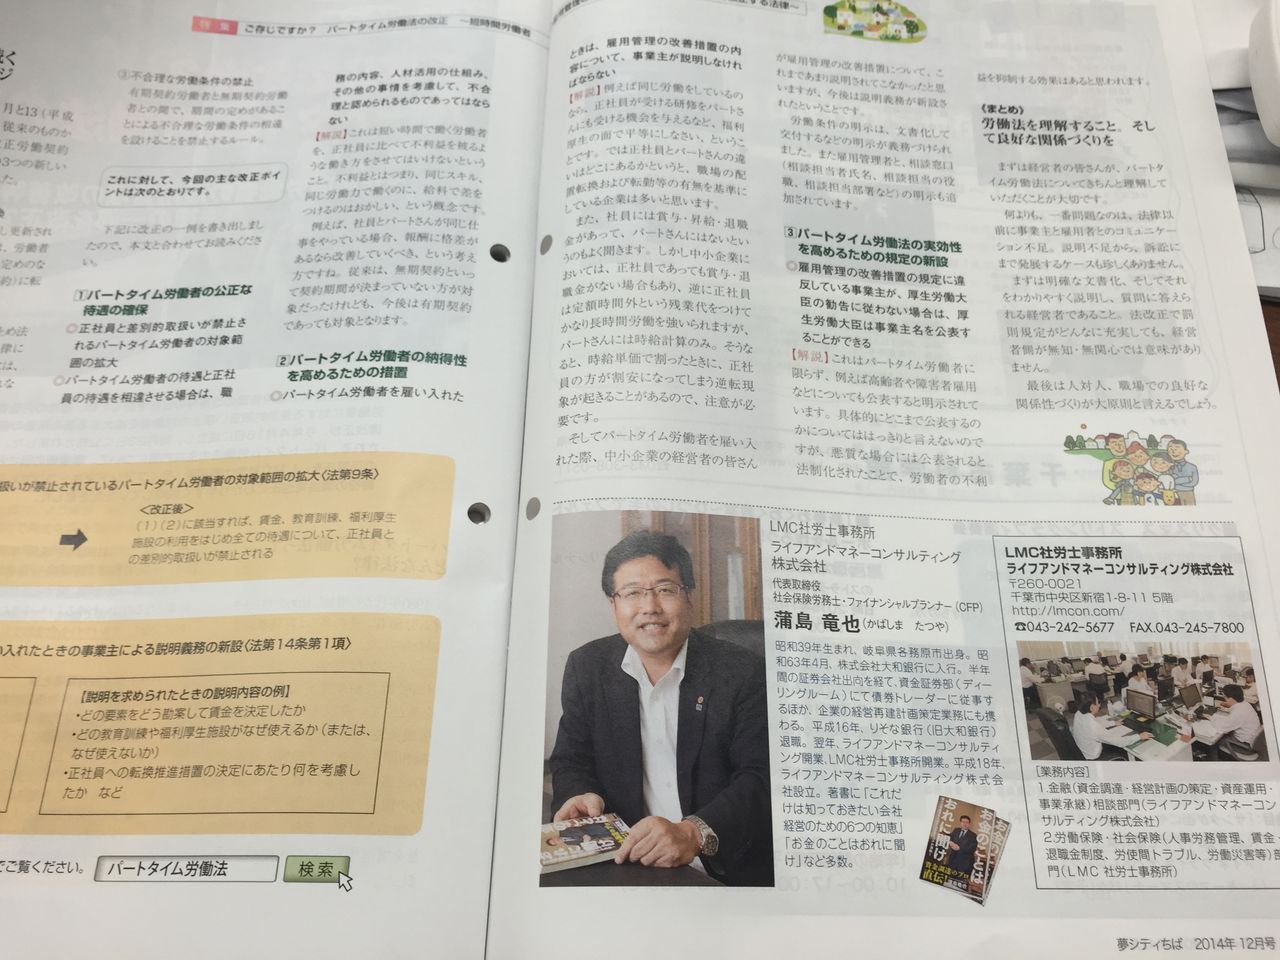 特集 ご存じですか？ パートタイム労働法の改正 ～短時間労働者
③不合理な労働条件の禁止
有期契約労働者と無期契約労働
者との間で、期間の定めがあるこ
とによる不合理な労働条件の相違
を設けることを禁止するルール。
これに対して、今回の主な改正ポイ
ントは次のとおりです。
下記に改正の一例を書き出しまし
たので、本文と合わせてお読みくださ
い。
1パートタイム労働者の公正な
待遇の確保
◎正社員と差別的取扱いが禁止さ
れるパートタイム労働者の対象範
囲の拡大
◎パートタイム労働者の待遇と正社
員の待遇を相違させる場合は、職
務の内容、人材活用の仕組み、
その他の事情を考慮して、不合
理と認められるものであってはなら
ない
【解説】これは短い時間で働く労働者
を、正社員に比べて不利益を被るよ
うな働き方をさせてはいけないという
こと。不利益とはつまり、同じスキル、
同じ労働力で働くのに、給料で差を
つけるのはおかしい、という概念です。
例えば、社員とパートさんが同じ仕
事をやっている場合、報酬に格差が
あるなら改善していくべき、という考え
方ですね。従来は、無期契約といっ
て契約期間が決まっていない方が対
象だったけれども、今後は有期契約
であっても対象となります。
2パートタイム労働者の納得性
を高めるための措置
◎パートタイム労働者を雇い入れた
ときは、雇用管理の改善措置の内
容について、事業主が説明しなけれ
ばならない
【解説】例えば同じ労働をしているの
なら、正社員が受ける研修をパートさ
んにも受ける機会を与えるなど、福利
厚生の面で平等にしなさい、というこ
とです。では正社員とパートさんの違
いはどこにあるかというと、職場の配
置転換および転勤等の有無を基準に
している企業は多いと思います。
また、社員には賞与・昇給・退職
金があって、パートさんにはないとい
うのもよく聞きます。しかし中小企業に
おいては、正社員であっても賞与・退
職金がない場合もあり、逆に正社員
は定額時間外という残業代をつけて
かなり長時間労働を強いられますが、
パートさんには時給計算のみ。そうな
ると、時給単価で割ったときに、正社
員の方が割安になってしまう逆転現
象が起きることがあるので、注意が必
要です。
そしてパートタイム労働者を雇い入
れた際、中小企業の経営者の皆さん
が雇用管理の改善措置について、こ
れまであまり説明されてこなかったと思
いますが、今後は説明義務が新設さ
れたということです。
労働条件の明示は、文書化して
交付するなどの明示が義務づけられ
ました。また雇用管理者と、相談窓口
（相談担当者氏名、相談担当の役
職、相談担当部署など）の明示も追
加されています。
3パートタイム労働法の実効性
を高めるための規定の新設
◎雇用管理の改善措置の規定に違
反している事業主が、厚生労働大
臣の勧告に従わない場合は、厚
生労働大臣は事業主名を公表す
ることができる
【解説】これはパートタイム労働者に
限らず、例えば高齢者や障害者雇用
などについても公表すると明示されて
います。具体的にどこまで公表するの
かについてははっきりと言えないので
すが、悪質な場合には公表されると
法制化されたことで、労働者の不利
益を抑制する効果はあると思われます。
《まとめ》
労働法を理解すること。そし
て良好な関係づくりを
まずは経営者の皆さんが、パートタ
イム労働法についてきちんと理解して
いただくことが大切です。
何よりも、一番問題なのは、法律以
前に事業主と雇用者とのコミュニケー
ション不足。説明不足から、訴訟に
まで発展するケースも珍しくありません。
まずは明確な文書化、そしてそれ
をわかりやすく説明し、質問に答えら
れる経営者であること。法改正で罰
則規定がどんなに充実しても、経営
者側が無知・無関心では意味があり
ません。
最後は人対人、職場での良好な
関係性づくりが大原則と言えるでしょう。
扱いが禁止されているパートタイム労働者の対象範囲の拡大〈法第9条〉
〈改正後〉
（1）（2）に該当すれば、賃金、教育訓練、福利厚生
施設の利用をはじめ全ての待遇について、正社員と
の差別的取扱いが禁止される
い入れたときの事業主による説明義務の新設〈法第14条第1項〉
【説明を求められたときの説明内容の例】
・どの要素をどう勘案して賃金を決定したか
・どの教育訓練や福利厚生施設がなぜ使えるか（または、
なぜ使えないか）
・正社員への転換推進措置の決定にあたり何を考慮し
たか など
でご覧ください。 パートタイム労働法 検索
LMC社労士事務所
ライフアンドマネーコンサルティング
株式会社
代表取締役
社会保険労務士・ファイナンシャルプランナー（CFP）
蒲島 竜也（かばしま たつや）
昭和39年生まれ、岐阜県各務原市出身。昭
和63年4月、株式会社大和銀行に入行。半年
間の証券会社出向を経て、資金証券部（ディー
リングルーム）にて債券トレーダーに従事す
るほか、企業の経営再建計画策定業務にも携
わる。平成16年、りそな銀行（旧大和銀行）
退職。翌年、ライフアンドマネーコンサルティ
ング開業、LMC社労士事務所開業。平成18年、
ライフアンドマネーコンサルティング株式会
社設立。著書に「これだ
けは知っておきたい会社
経営のための6つの知恵」
「お金のことはおれに聞
け」など多数。
お金のことは
おれに聞け
資金調達のプロ
直伝！
LMC社労士事務所
ライフアンドマネーコンサルティング株式会社
〒260-0021
千葉市中央区新宿1-8-11 5階
http://lmcon.com/
☎043-242-5677 FAX.043-245-7800
［業務内容］
1.金融（資金調達・経営計画の策定・資産運用・
事業承継）相談部門（ライフアンドマネーコン
サルティング株式会社）
2.労働保険・社会保険（人事労務管理、賃金・
退職金制度、労使間トラブル、労働災害等）部
門（LMC 社労士事務所）
夢シティちば 2014年 12月号